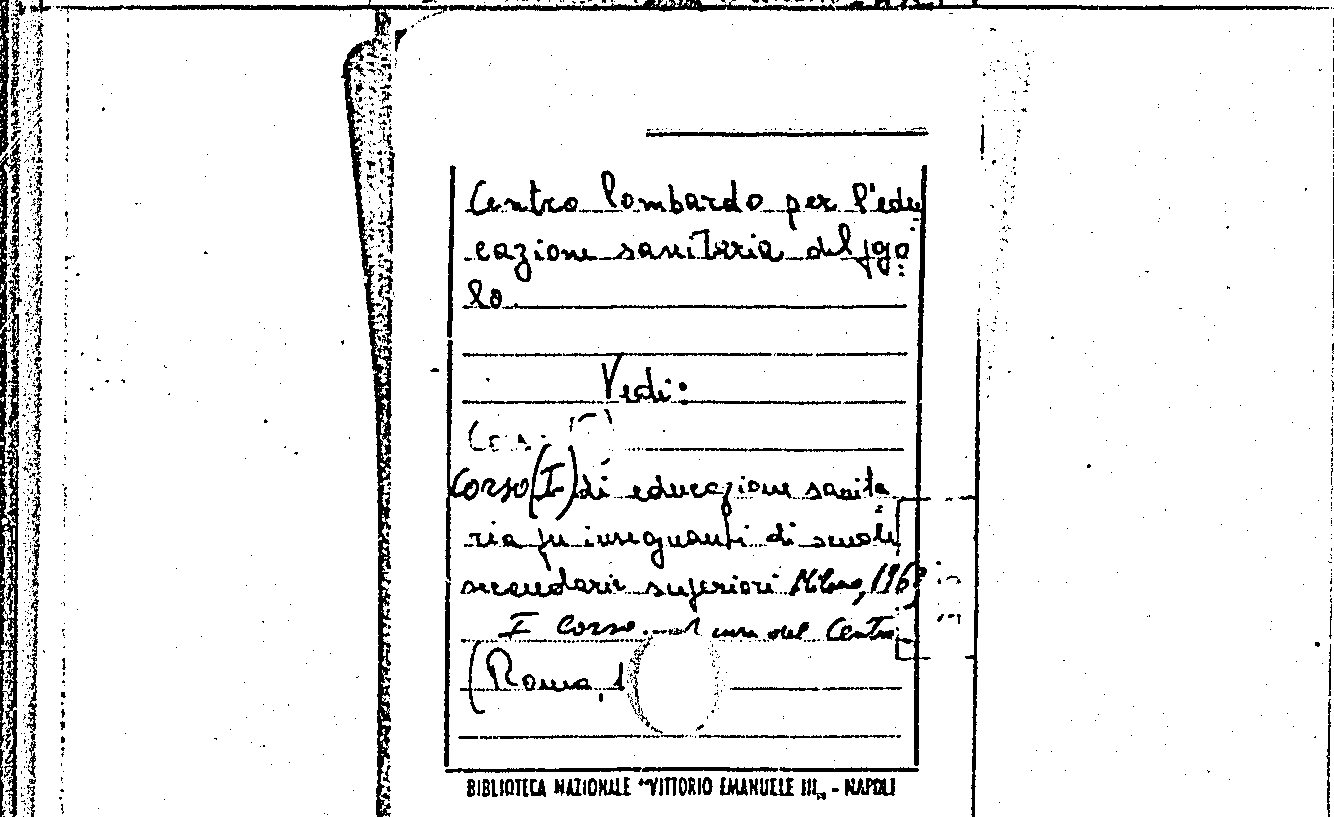 Centro lombardo per l'edu
cazione sanitaria del po
lo
Vedi:
Corso (I) di educazione sanita
ria per insegnanti di scuole
secondarie superiori Milano, 196
I Corso. cura del Centro
(Roma, 1
BIBLIOTECA NAZIONALE "VITTORIO EMANUELE III„ - NAPOLI